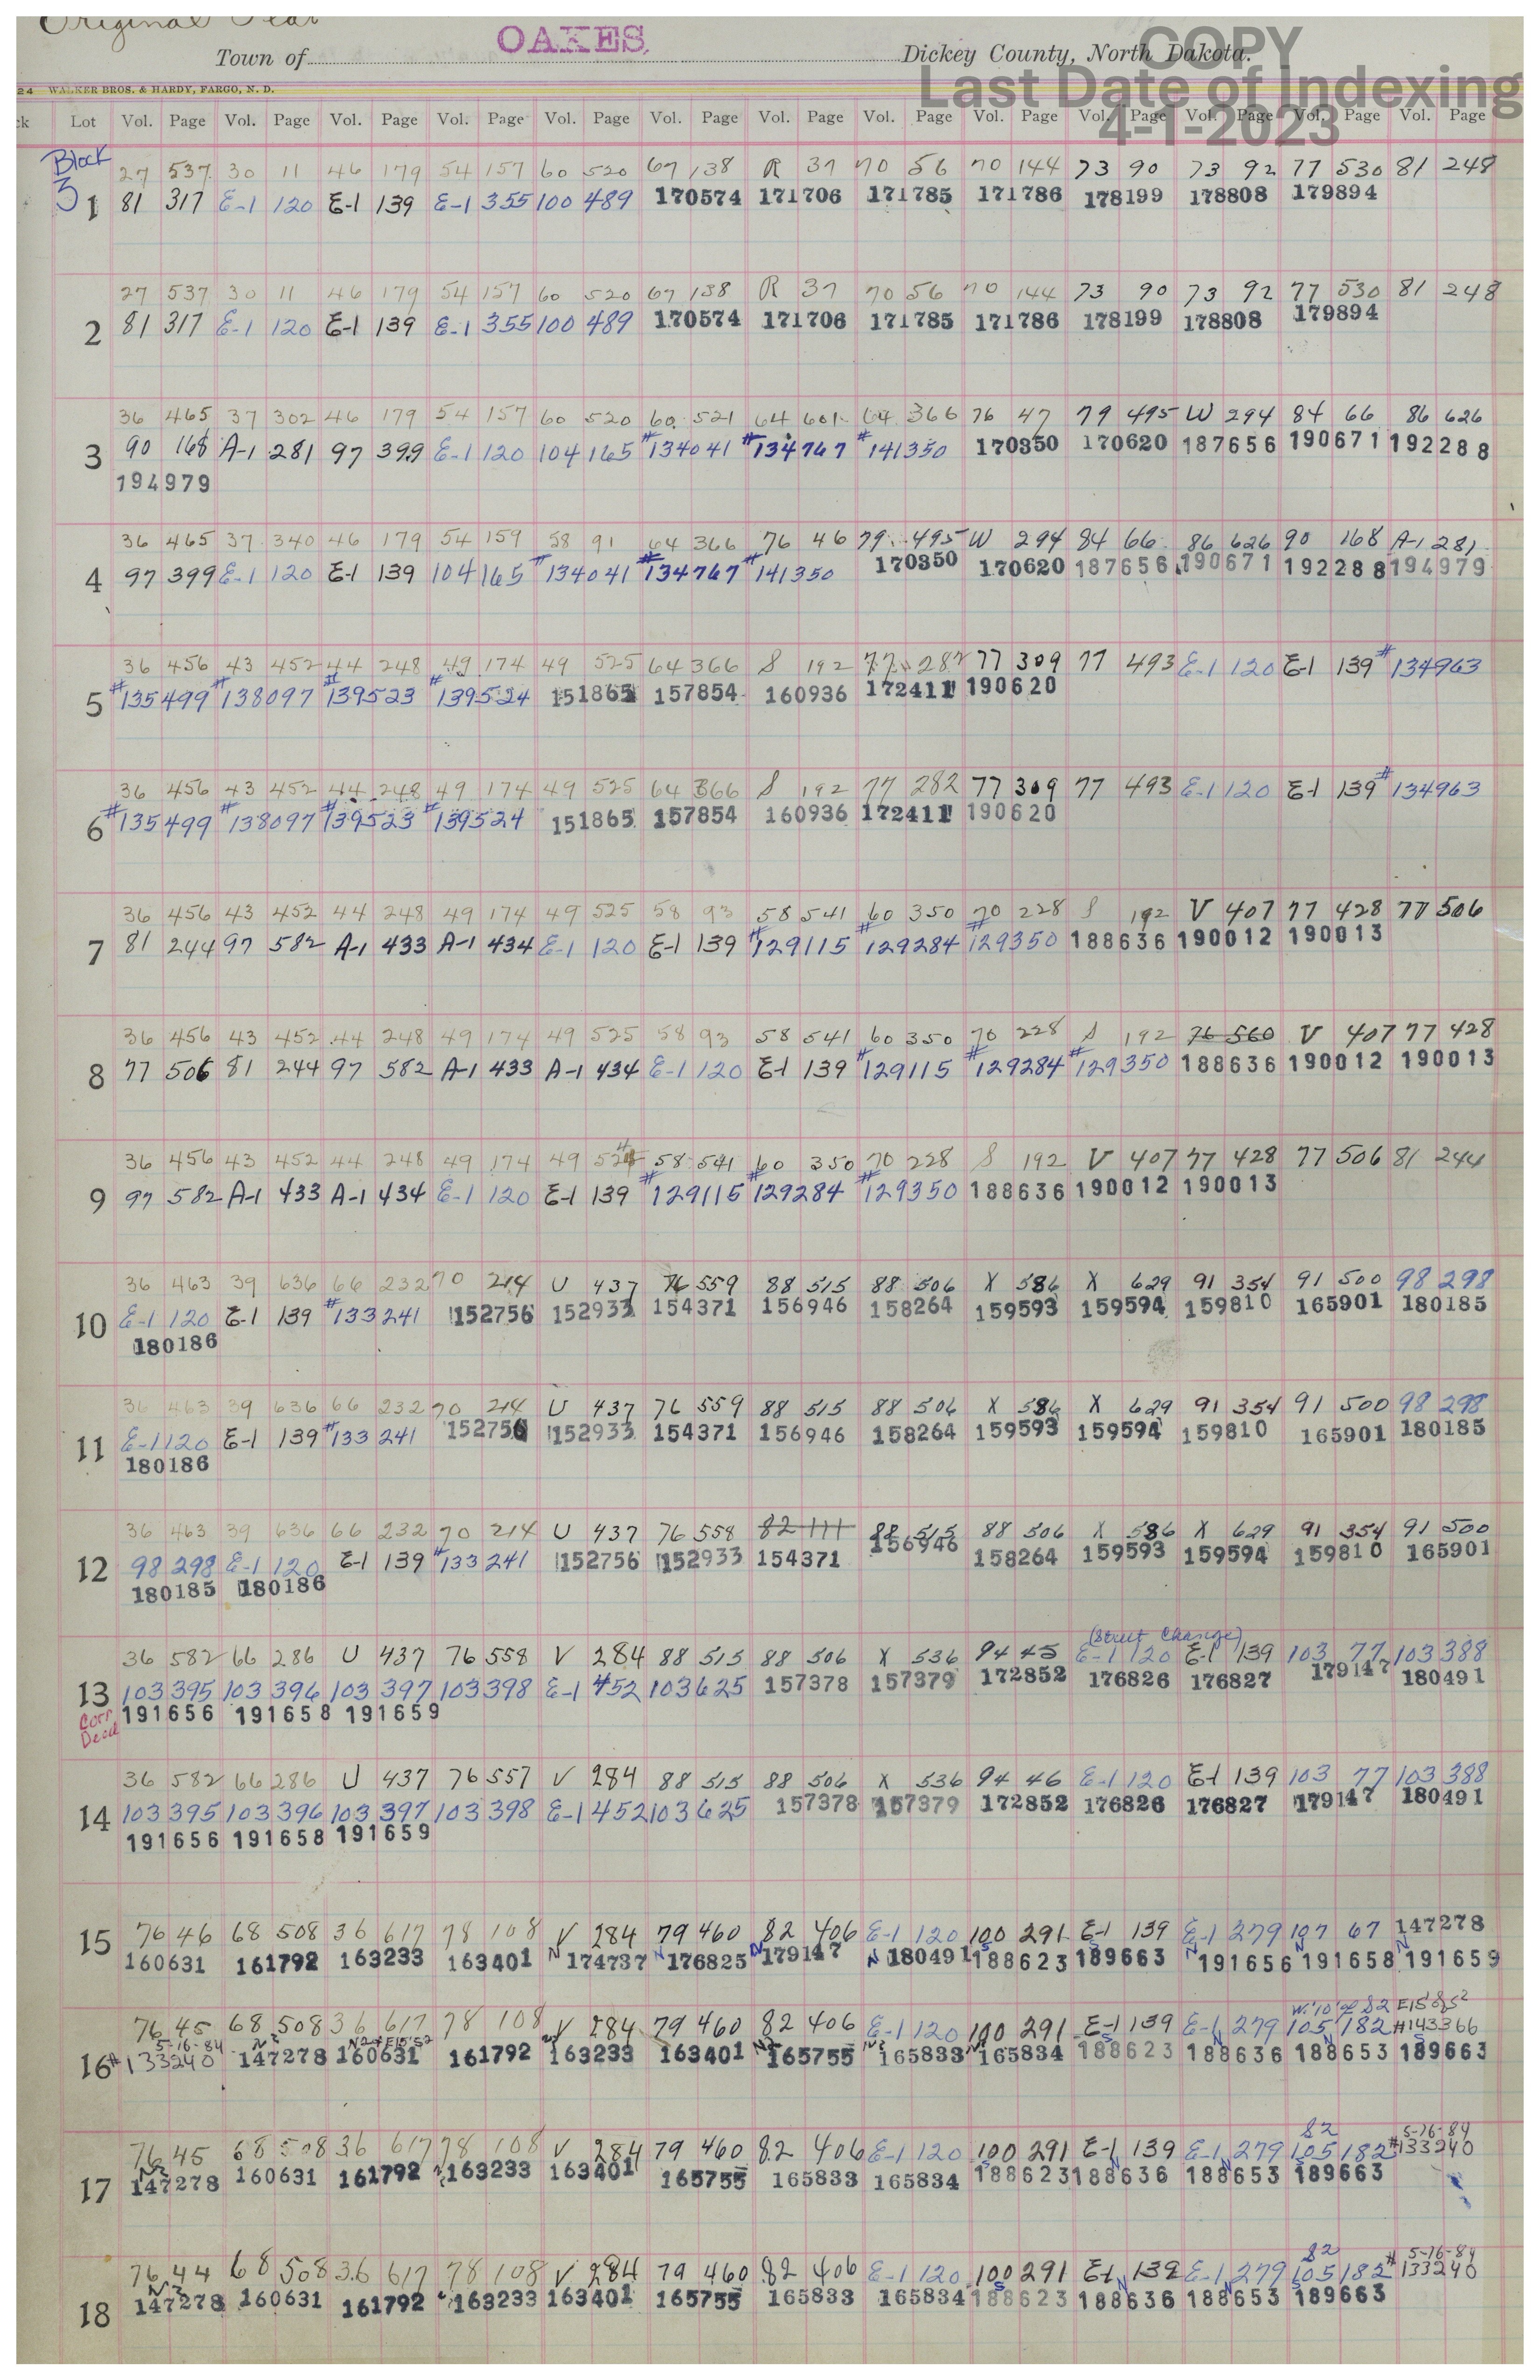 Original
Town of OAKES Dickey County, North Dakota.
COPY
Last Date of Indexing
4-1-2023
24 WALKER BROS. & HARDY, FARGO, N. D.
ck Lot Vol. Page Vol. Page Vol. Page Vol. Page Vol. Page Vol. Page Vol. Page Vol. Page Vol. Page Vol. Page Vol. Page Vol. Page Vol. Page
Block
3
27 537 30 11 46 179 54 157 60 520 67 138 R 37 70 56 70 144 73 90 73 92 77 530 81 248
1 81 317 E-1 120 E-1 139 E-1 355 100 489 170574 171706 171785 171786 178199 178808 179894
27 537 30 11 46 179 54 157 60 520 67 138 R 37 70 56 70 144 73 90 73 92 77 530 81 248
2 81 317 E-1 120 E-1 139 E-1 355 100 489 170574 171706 171785 171786 178199 178808 179894
36 465 37 302 46 179 54 157 60 520 60 521 64 601 64 366 76 47 79 495 W 294 84 66 86 626
3 90 168 A-1 281 97 399 E-1 120 104 165 #134041 #134767 #141350 170350 170620 187656 190671 192288
194979
36 465 37 340 46 179 54 159 58 91 64 366 76 46 79 495 W 294 84 66 86 626 90 168 A-1 281
4 97 399 E-1 120 E-1 139 104 165 #134041 #134767 #141350 170350 170620 187656 190671 192288 194979
36 456 43 452 44 248 49 174 49 525 64 366 S 192 77 282 77 309 77 493 E-1 120 E-1 139 #134963
5 #135499 #138097 #139523 #139524 151865 157854 160936 172411 190620
36 456 43 452 44 248 49 174 49 525 64 366 S 192 77 282 77 309 77 493 E-1 120 E-1 139 #134963
6 #135499 #138097 #139523 #139524 151865 157854 160936 172411 190620
36 456 43 452 44 248 49 174 49 525 58 93 58 541 60 350 70 228 S 192 V 407 77 428 77 506
7 81 244 97 582 A-1 433 A-1 434 E-1 120 E-1 139 #129115 #129284 #129350 188636 190012 190013
36 456 43 452 44 248 49 174 49 525 58 93 58 541 60 350 70 228 S 192 76 560 V 407 77 428
8 77 506 81 244 97 582 A-1 433 A-1 434 E-1 120 E-1 139 #129115 #129284 #129350 188636 190012 190013
36 456 43 452 44 248 49 174 49 58 541 60 350 70 228 S 192 V 407 77 428 77 506 81 244
9 97 582 A-1 433 A-1 434 E-1 120 E-1 139 #129115 #129284 #129350 188636 190012 190013
36 463 39 636 66 232 70 214 U 437 76 559 88 515 88 506 X 586 X 629 91 354 91 500 98 298
10 E-1 120 E-1 139 #133241 152756 152933 154371 156946 158264 159593 159594 159810 165901 180185
180186
36 463 39 636 66 232 70 214 U 437 76 559 88 515 88 506 X 586 X 629 91 354 91 500 98 298
11 E-1 120 E-1 139 #133241 152756 152933 154371 156946 158264 159593 159594 159810 165901 180185
180186
36 463 39 636 66 232 70 214 U 437 76 558 82 111 88 515 88 506 X 586 X 629 91 354 91 500
12 98 298 E-1 120 E-1 139 #133241 152756 152933 154371 156946 158264 159593 159594 159810 165901
180185 180186
(Street Change)
36 582 66 286 U 437 76 558 V 284 88 515 88 506 X 536 94 45 E-1 120 E-1 139 103 77 103 388
13 103 395 103 396 103 397 103 398 E-1 452 103 625 157378 157379 172852 176826 176827 179147 180491
Corr. Deed 191656 191658 191659
36 582 66 286 U 437 76 557 V 284 88 515 88 506 X 536 94 46 E-1 120 E-1 139 103 77 103 388
14 103 395 103 396 103 397 103 398 E-1 452 103 625 157378 157379 172852 176826 176827 179147 180491
191656 191658 191659
15 76 46 68 508 36 617 78 108 V 284 79 460 82 406 E-1 120 100 291 E-1 139 E-1 279 107 67 147278
160631 161792 163233 163401 N 174737 N 176825 N 179147 N 180491 S 188623 S 189663 N 191656 N 191658 N 191659
W.'10' of S2 E15' of S2
76 45 68 508 36 617 78 108 V 284 79 460 82 406 E-1 120 100 291 E-1 139 E-1 279 105 182 #143366
5-16-84 N2 N2+E15'S2
16 #133240 147278 160631 161792 163233 163401 165755 165833 165834 188623 188636 188653 189663
S2 5-16-84
76 45 68 508 36 617 78 108 V 284 79 460 82 406 E-1 120 100 291 E-1 139 E-1 279 105 182 #133240
17 147278 160631 161792 163233 163401 165755 165833 165834 188623 188636 188653 189663
S2 5-16-84
76 44 68 508 36 617 78 108 V 284 79 460 82 406 E-1 120 100 291 E-1 139 E-1 279 105 182 #133240
18 147278 160631 161792 163233 163401 165755 165833 165834 188623 188636 188653 189663